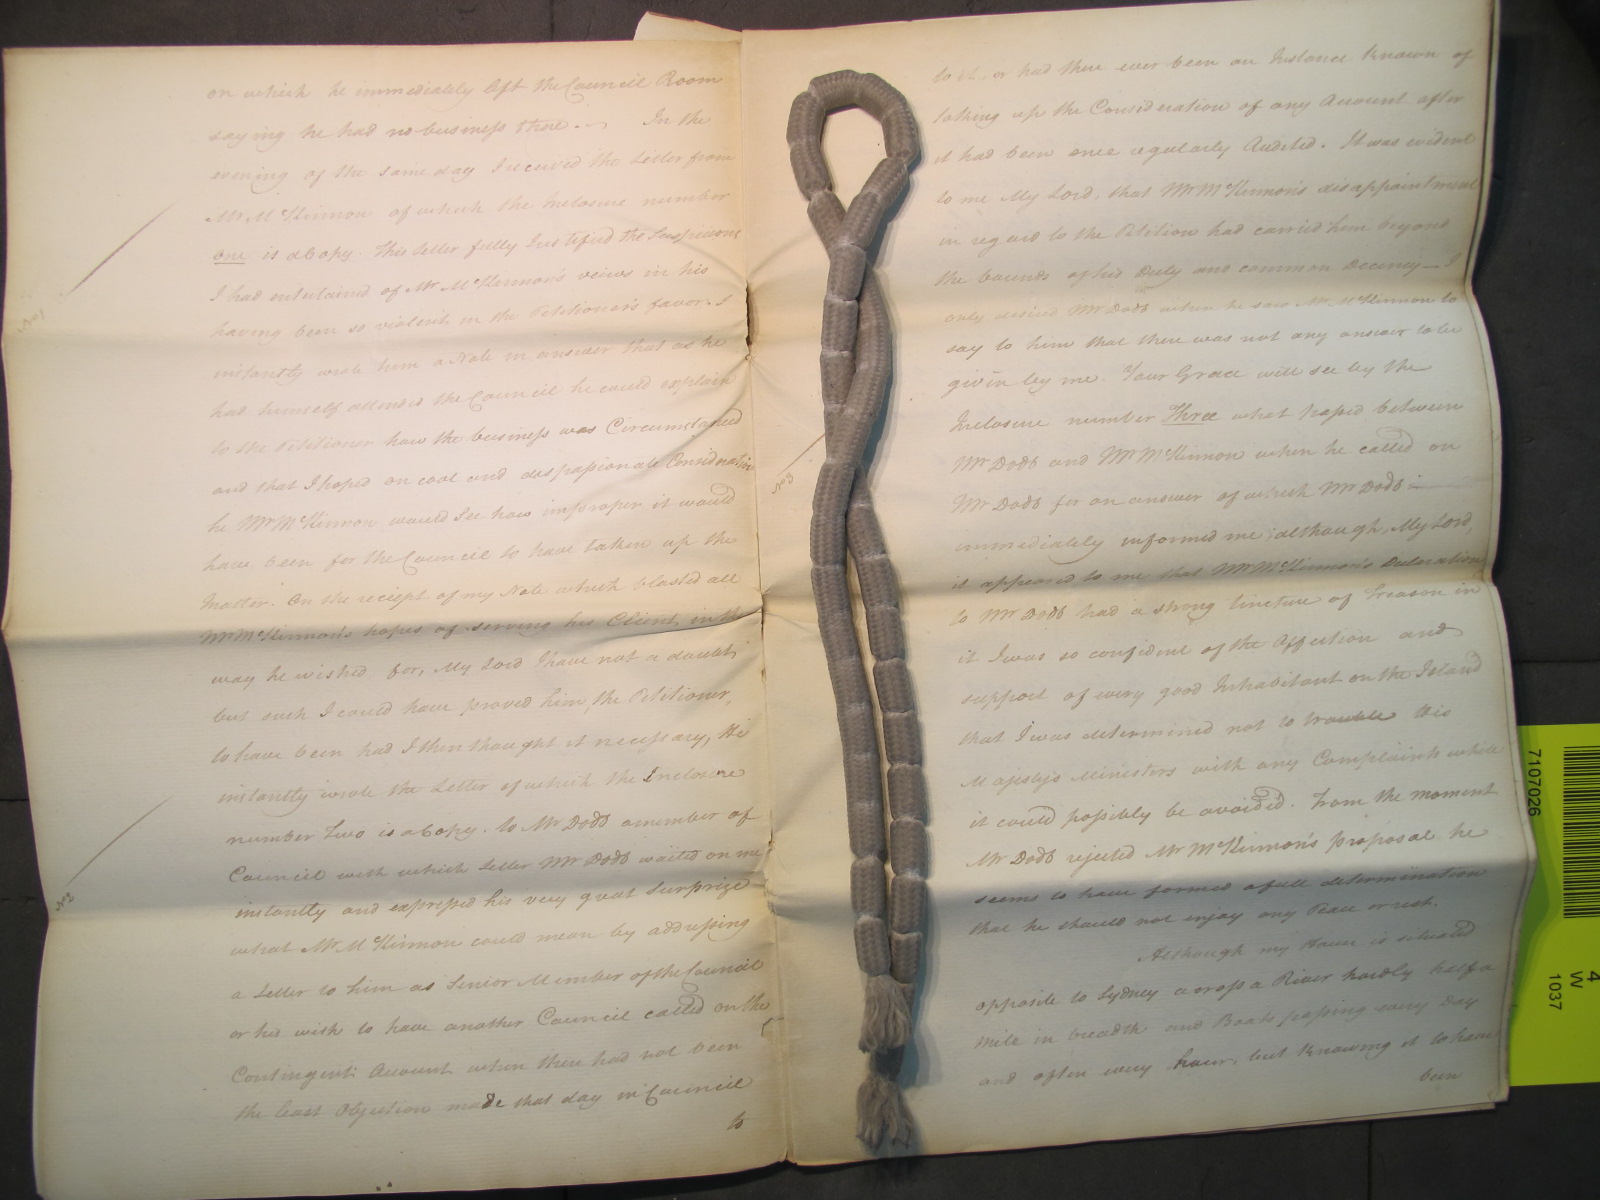 on which he immediately left the Council Room
saying he had no business there. — In the
evening of the same day I received the Letter from
Mr. McKinnon of which the Inclosure number
one is a Copy. This Letter fully Justified the Suspicions
I had entertained of Mr. McKinnon's views in his
No. 1
having been so violent in the Petitioner's favor. I
instantly wrote him a Note in answer that as he
had himself attended the Council he could explain
to the Petitioner how the business was Circumstanced
and that I hoped on cool and dispassionate Consideration
he Mr. McKinnon would See how improper it would
have been for the Council to have taken up the
Matter. On the receipt of my Note which blasted all
Mr. McKinnon's hopes of serving his Client in the
way he wished for, My Lord I have not a doubt,
but such I could have proved him, the Petitioner,
to have been had I then thought it necessary, He
instantly wrote the Letter of which the Inclosure
number Two is a Copy. to Mr Dodd a member of
Council with which Letter Mr Dodd waited on me
No. 2
instantly and expressed his very great Surprize
what Mr. McKinnon could mean by addressing
a Letter to him as Senior Member of the Council
or his wish to have another Council called on the
Contingent Account when there had not been
the least Objection made that day in Council
to
to it, or had there ever been an Instance known of
taking up the Consideration of any Account after
it had been once regularly Audited. It was evident
to me My Lord, that Mr McKinnon's disappointment
in regard to the Petition had carried him beyond
the bounds of his Duty and common Decency — I
only desired Mr Dodd when he saw Mr. McKinnon to
say to him that there was not any answer to be
given by me. Your Grace will see by the
Inclosure number Three what passed between
Mr Dodd and Mr McKinnon when he called on
No 3
Mr Dodd for an answer of which Mr Dodd
immediately informed me; although, My Lord,
it appeared to me that Mr McKinnon's Declaration
to Mr Dodd had a strong tincture of Treason in
it I was so confident of the Affection and
support of every good Inhabitant on the Island
that I was determined not to trouble His
Majesty's Ministers with any Complaints while
it could possibly be avoided. From the moment
Mr Dodd rejected Mr McKinnon's proposal he
seems to have formed a full determination
that he should not enjoy any Peace or rest.
Although my House is situated
opposite to Sydney across a River hardly half a
mile in breadth and Boats passing every day
and often every hour, but knowing it to have
been
7107026
4
W
1037